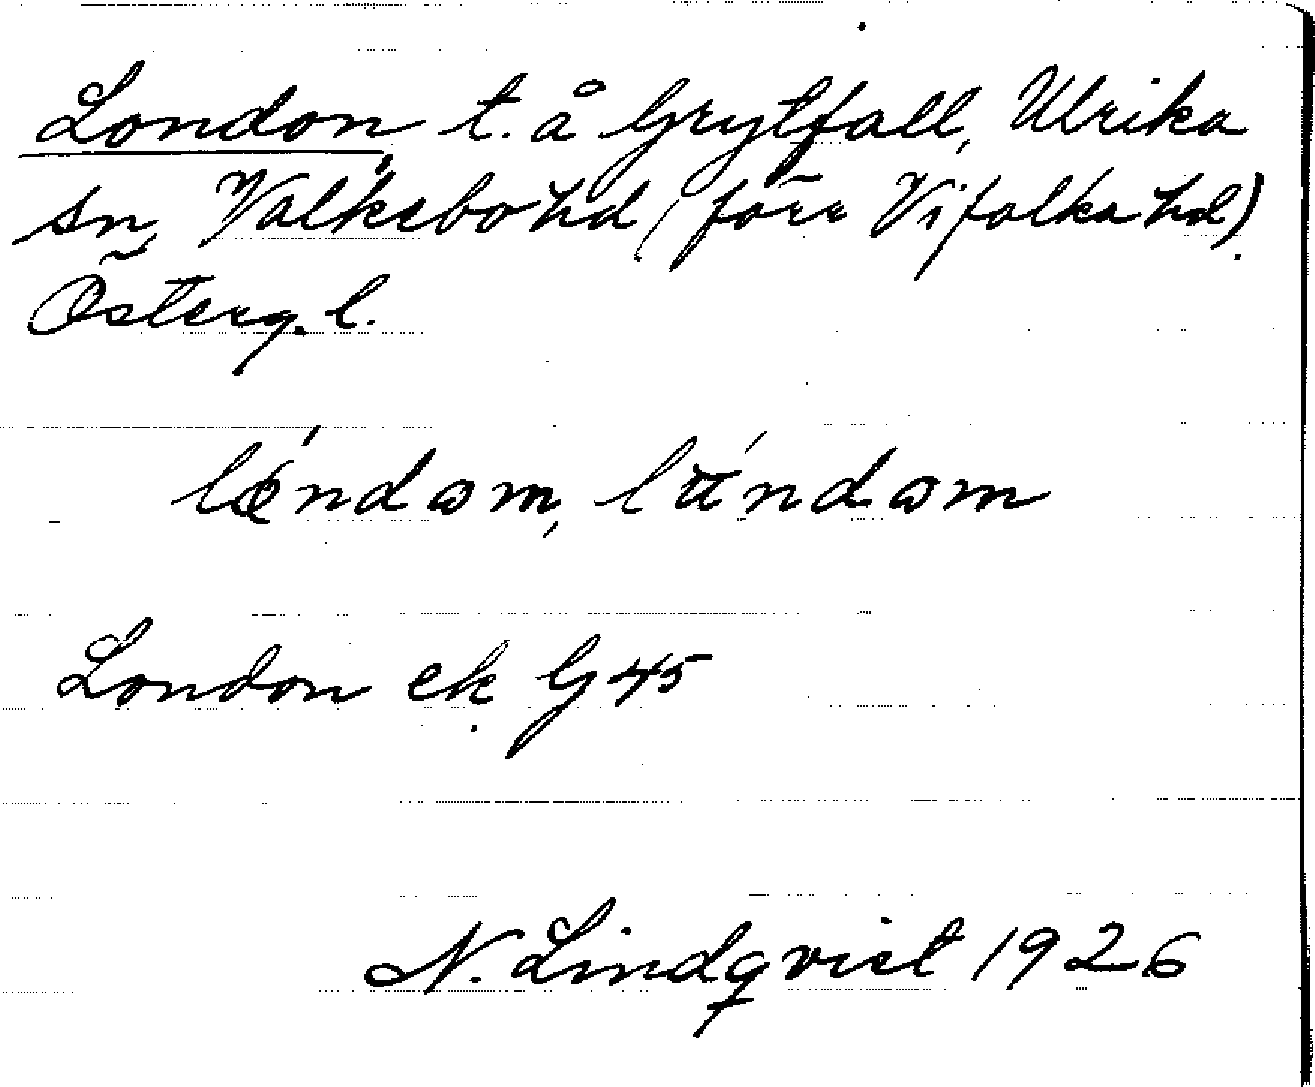 London t. å Grytfall, Ulrika
sn, Valkebo hd (förr Vifolka hd).
Österg. l.
London ek G 45
N. Lindqvist 1926